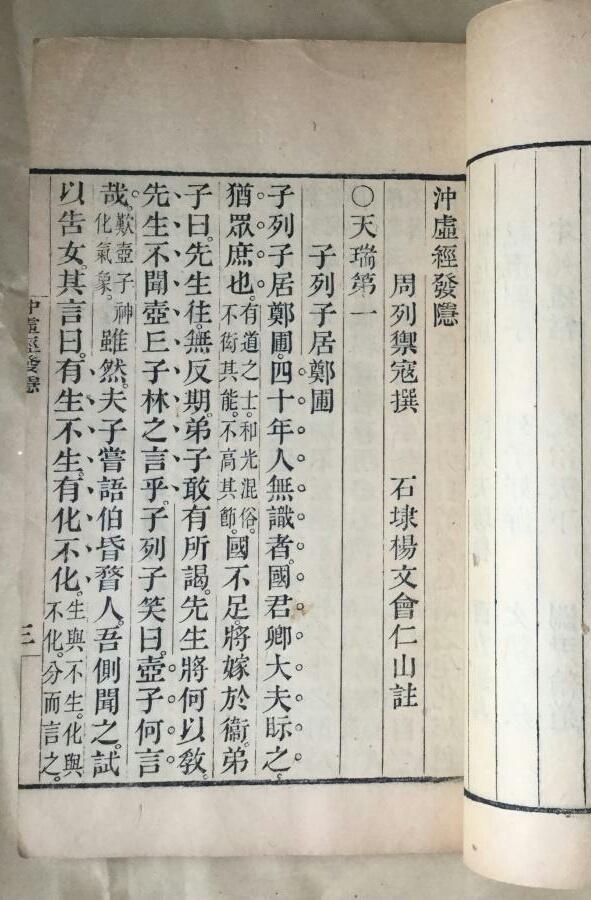 沖虛經發隱
周列禦寇撰 石埭楊文會仁山註
○天瑞第一
子列子居鄭圃
子列子居鄭圃。四十年人無識者。國君卿大夫眎之。
猶眾庶也。有道之士。和光混俗。不衒其能。不高其節。國不足。將嫁於衞。弟
子曰。先生往無反期。弟子敢有所謁。先生將何以敎。
先生不聞壺丘子林之言乎。子列子笑曰。壺子何言
哉。歎壺子神化氣象。雖然。夫子嘗語伯昏瞀人。吾側聞之。試
以告女。其言曰。有生不生。有化不化。生與不生。化與不化。分而言之。
沖虛經發隱
三